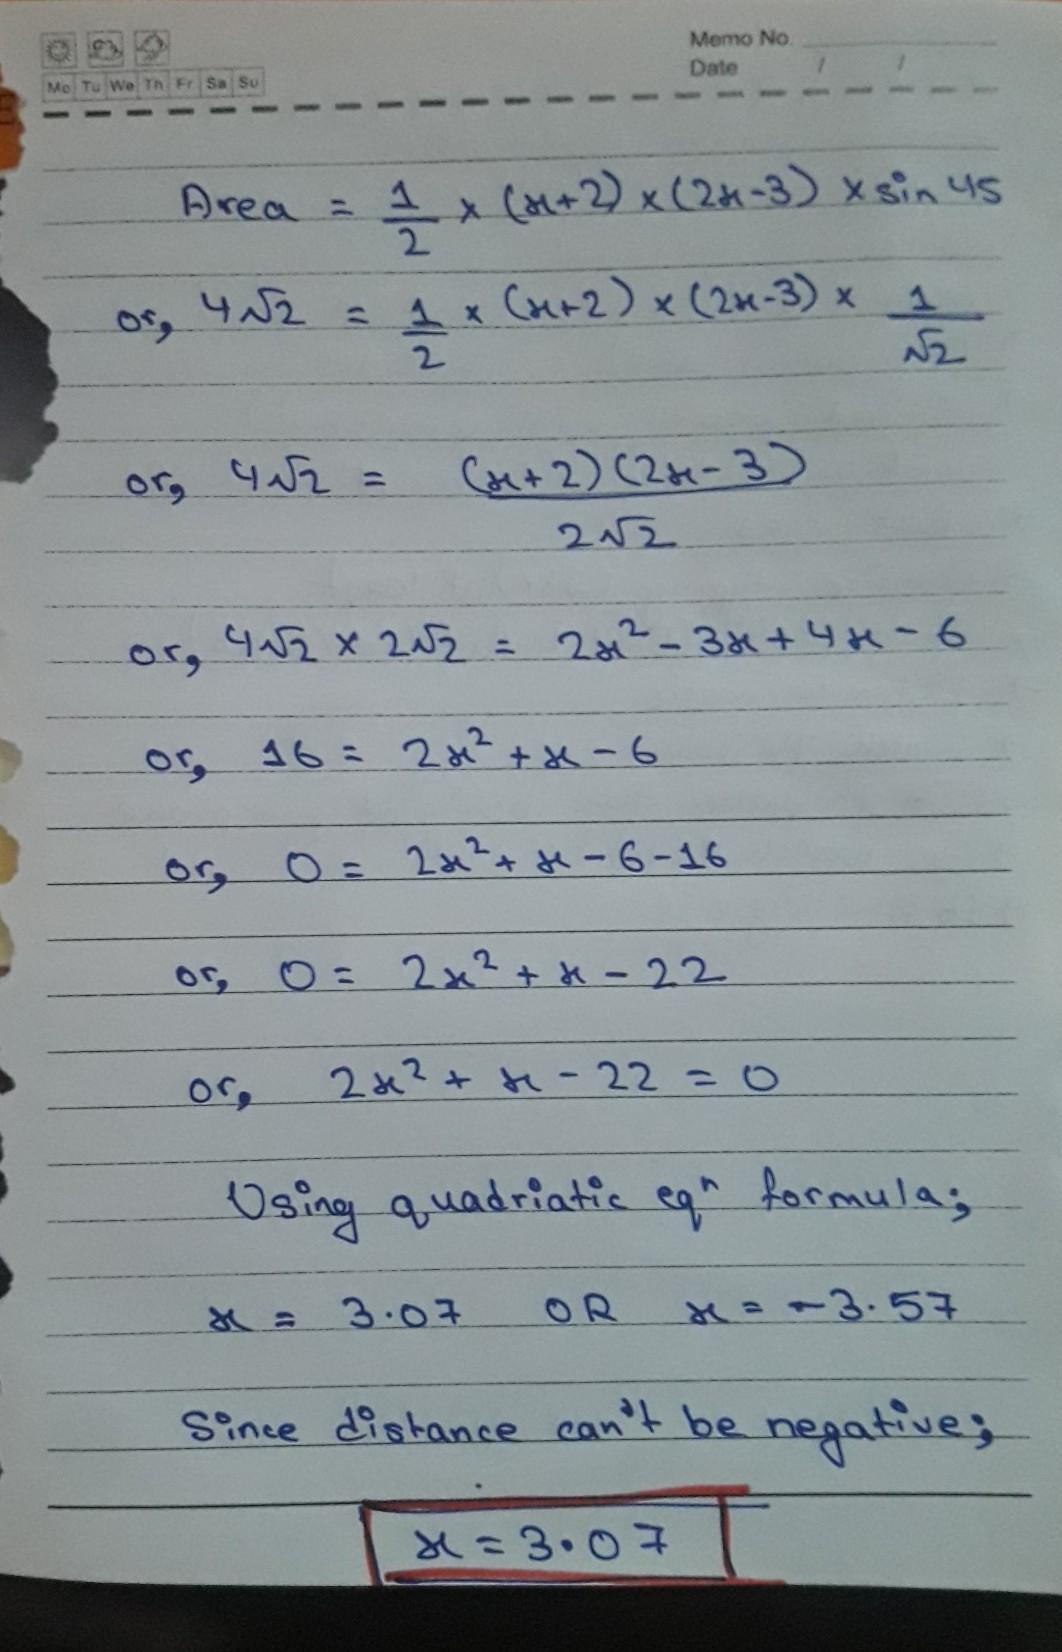 Memo No.
Date / /
Mo Tu We Th Fr Sa Su
Area = 1/2 × (x+2) × (2x-3) × sin 45
or, 4√2 = 1/2 × (x+2) × (2x-3) × 1/√2
or, 4√2 = (x+2)(2x-3)/2√2
or, 4√2 × 2√2 = 2x² - 3x + 4x - 6
or, 16 = 2x² + x - 6
or, 0 = 2x² + x - 6 - 16
or, 0 = 2x² + x - 22
or, 2x² + x - 22 = 0
Using quadriatic eqⁿ formula;
x = 3.07 OR x = -3.57
Since distance can't be negative;
x = 3.07